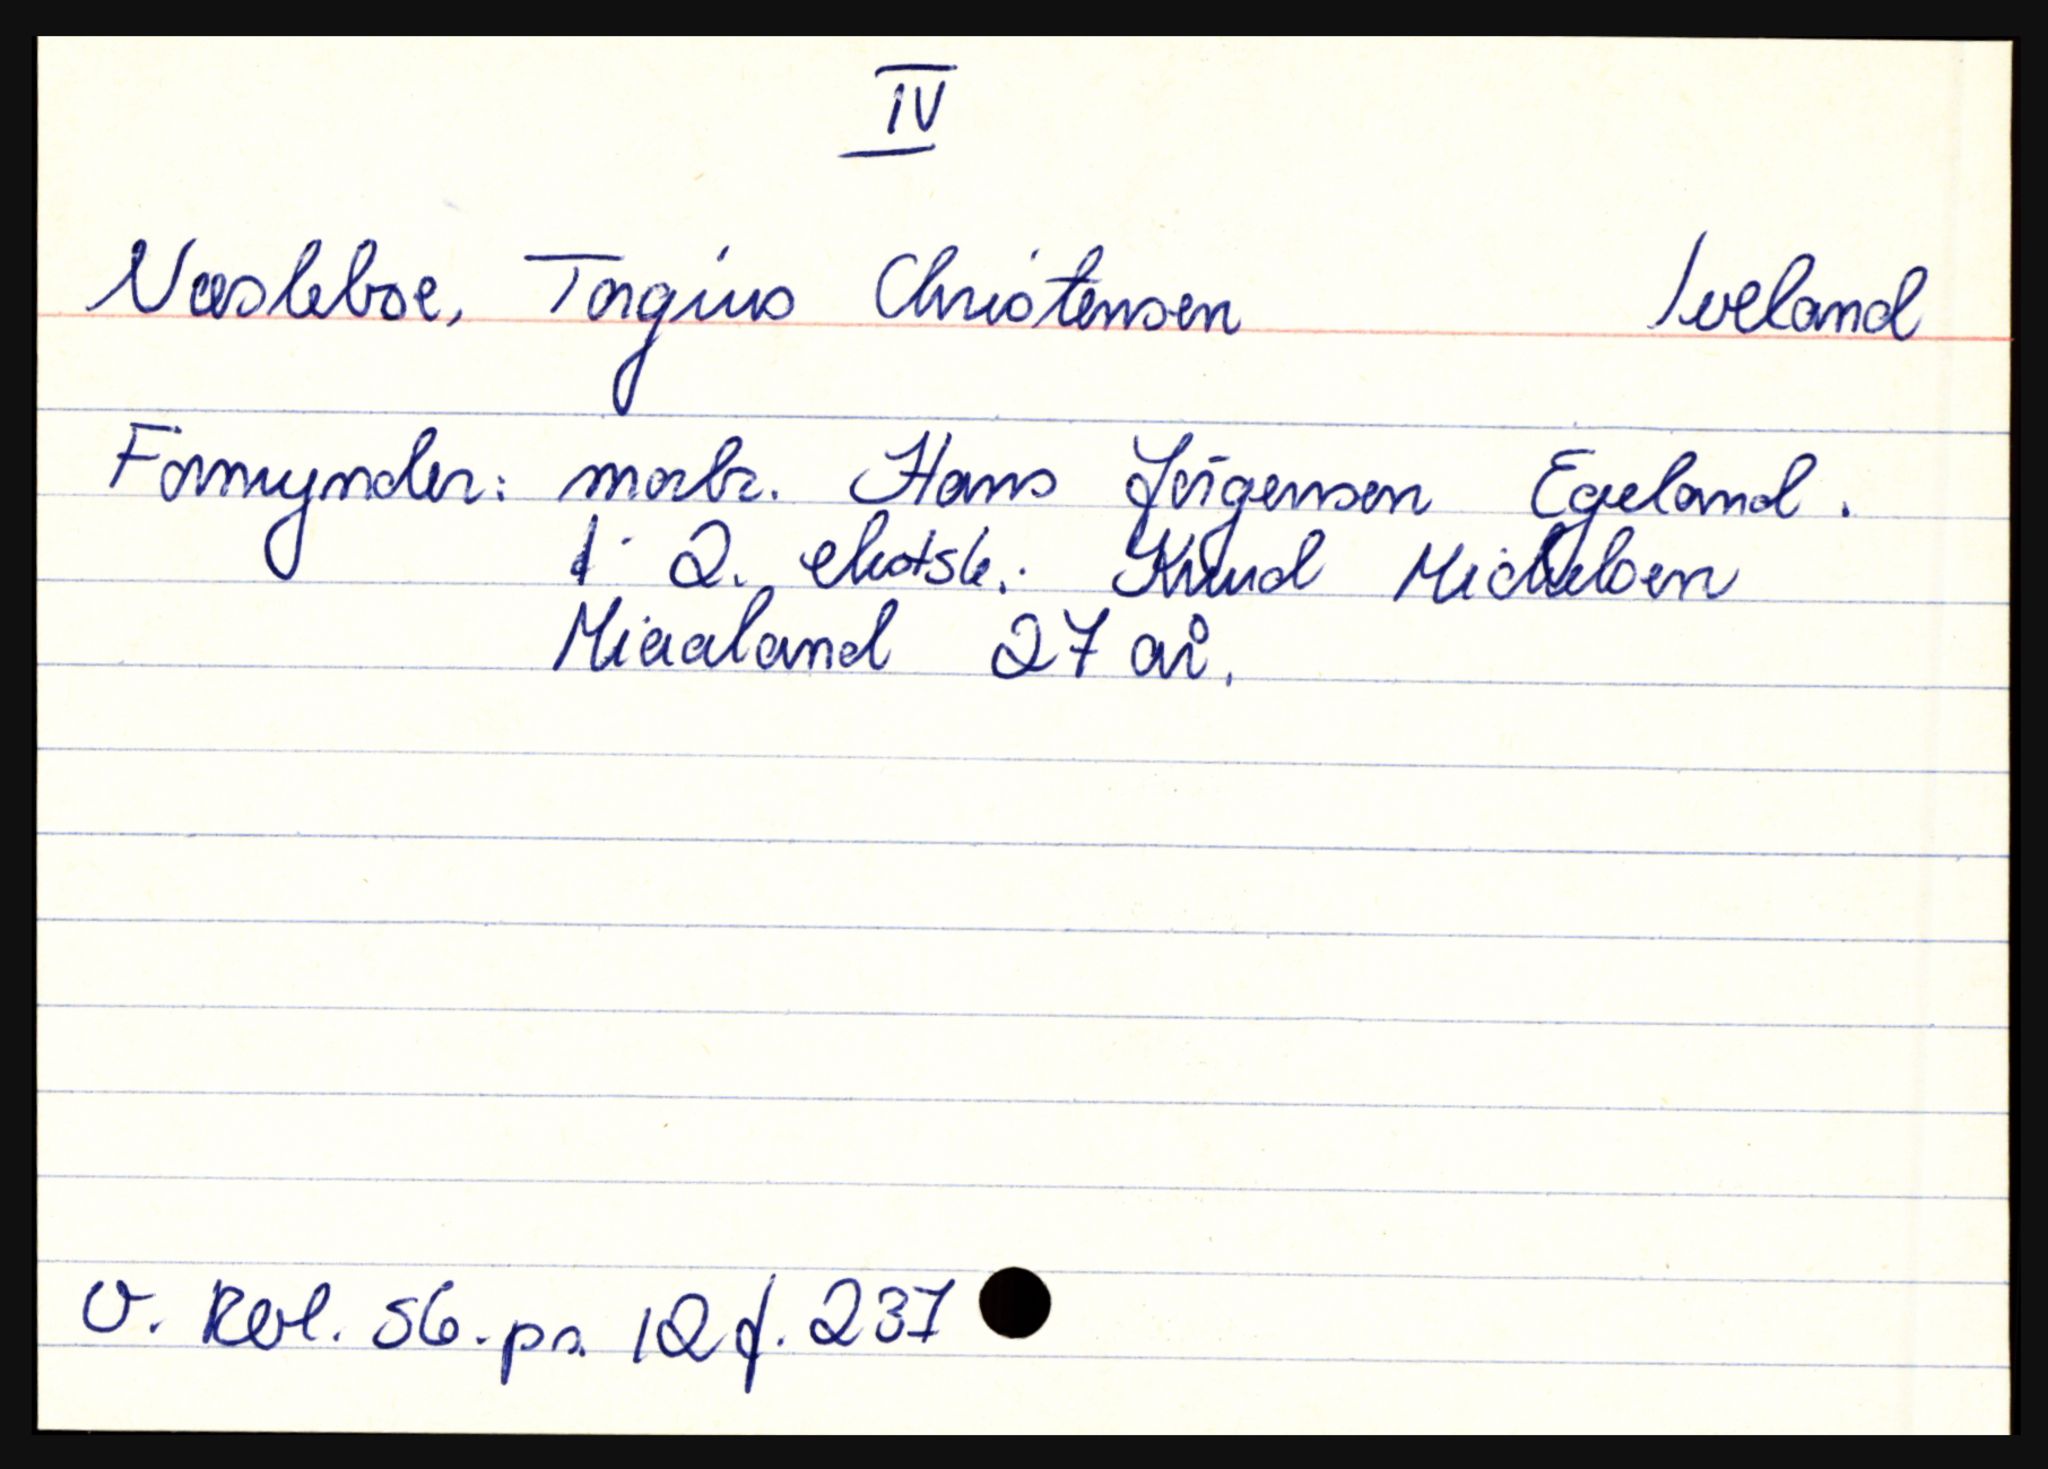 IV
Væsleboe, Torgius Christensen Iveland
Formynder: morbr. Hans Jörgensen Egeland.
I 2. ekotsk.: Knud Michelsen
Miaaland 27 år.
V. Rbl. S6. pr. 12 f. 237